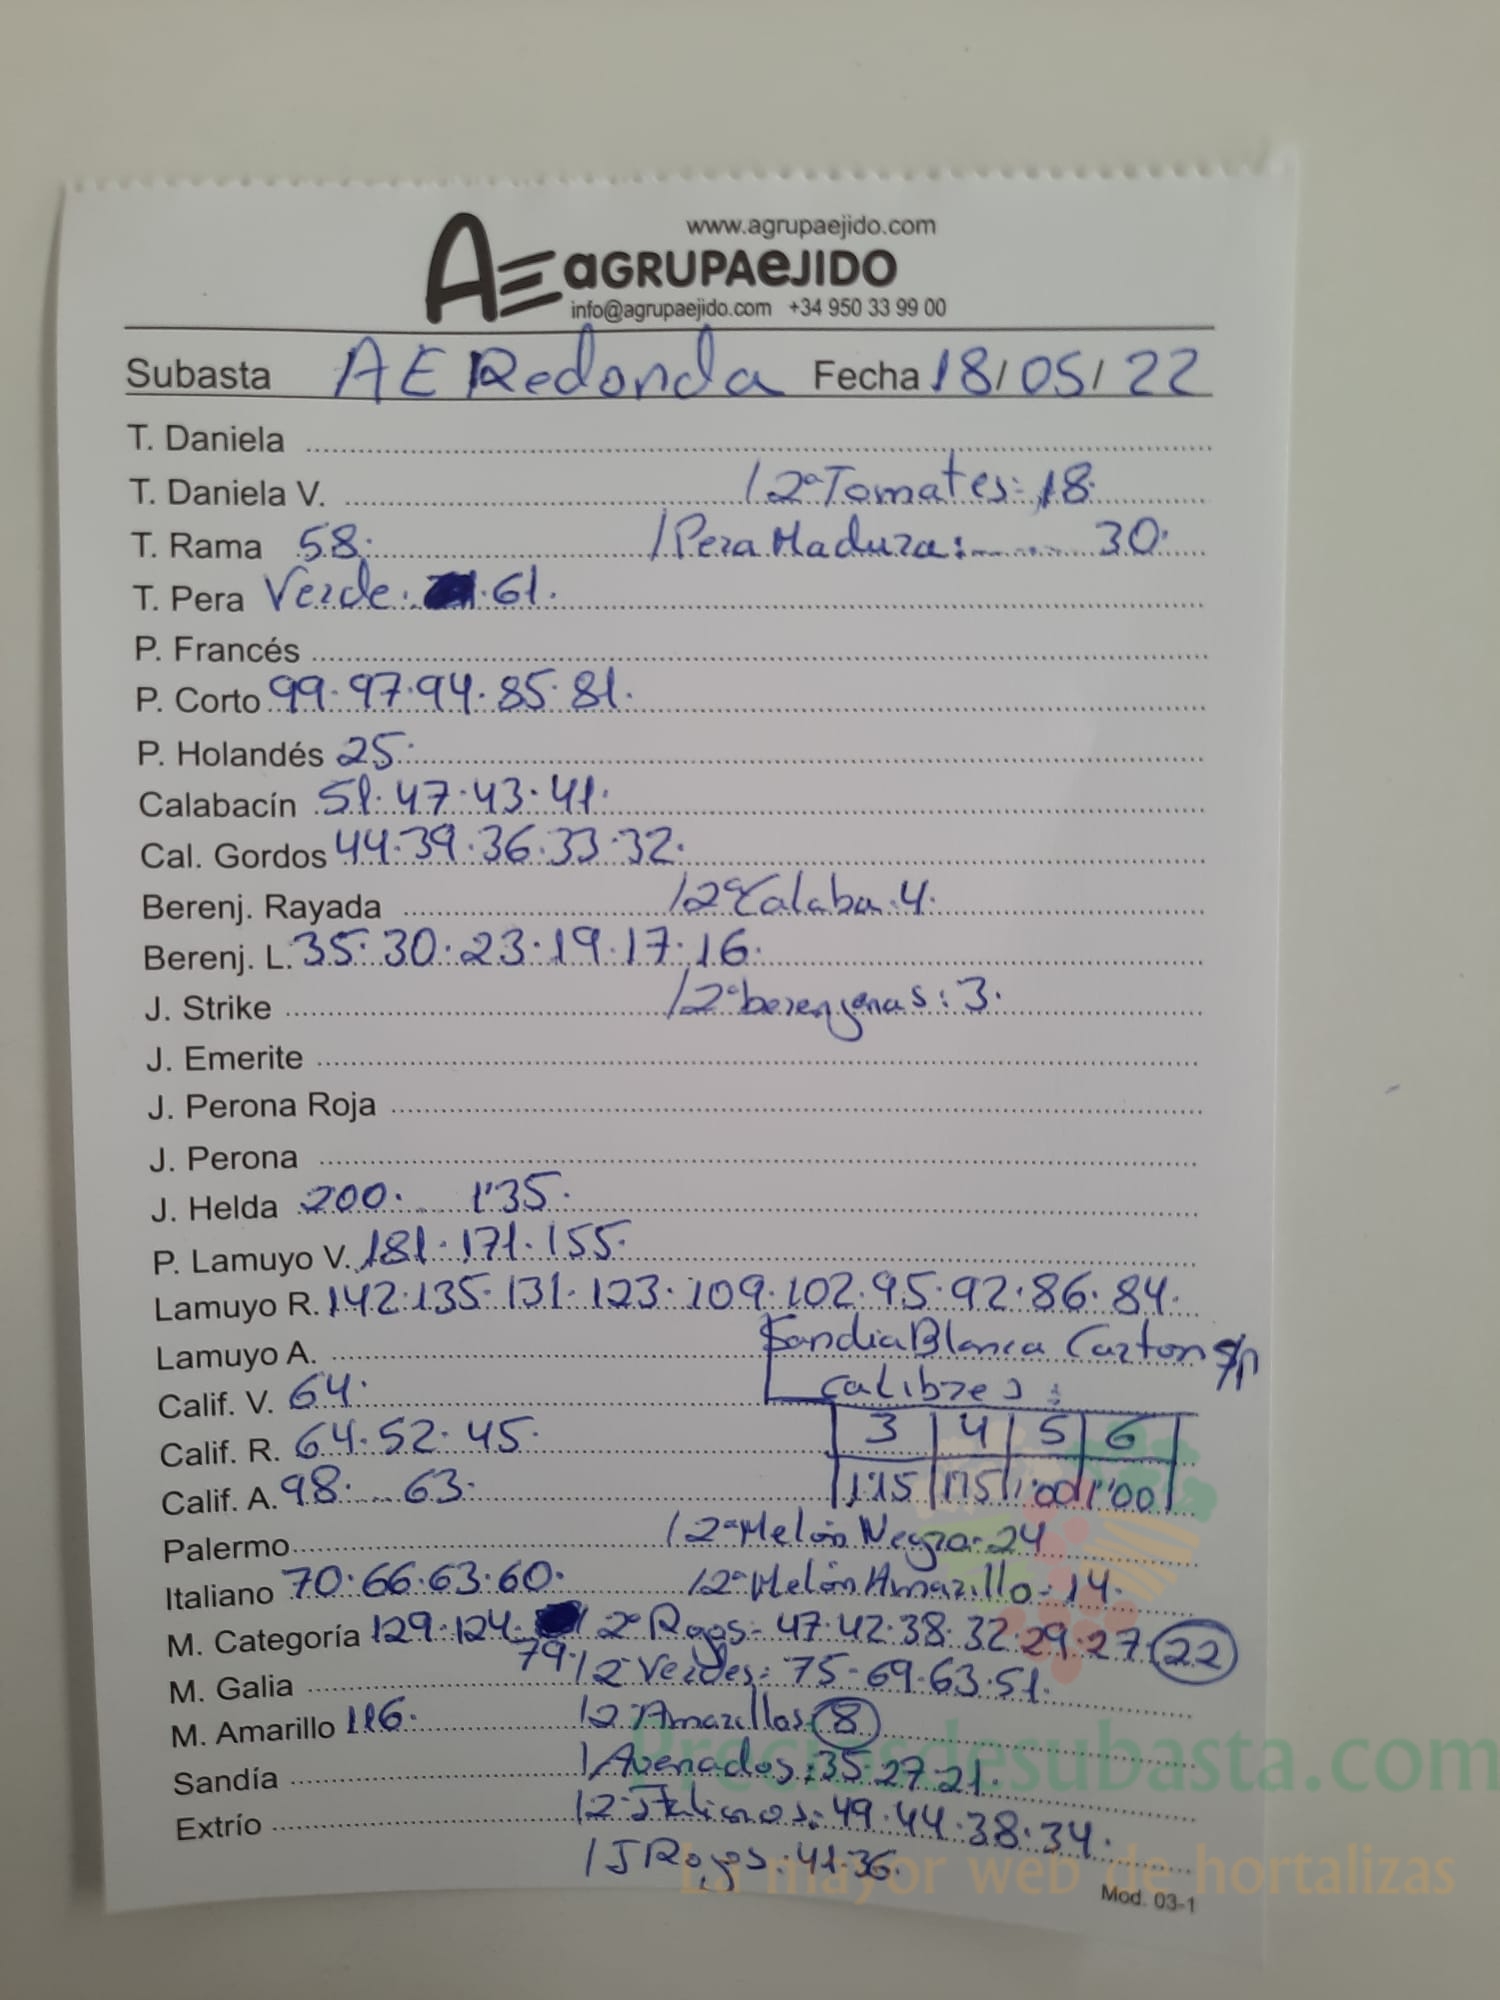 www.agrupaejido.com
AE aGRUPAeJIDO
info@agrupaejido.com +34 950 33 99 00
Subasta AE Redonda Fecha 18/05/22
T. Daniela
T. Daniela V. /2ª Tomates: 18.
T. Rama 58. /Pera Madura: 30.
T. Pera Verde. 61.
P. Francés
P. Corto 99.97.94.85.81.
P. Holandés 25.
Calabacín 51.47.43.41.
Cal. Gordos 44.39.36.33.32.
Berenj. Rayada /2ª Calaba. 4.
Berenj. L. 35.30.23.19.17.16.
J. Strike /2ª berenjenas: 3.
J. Emerite
J. Perona Roja
J. Perona
J. Helda 200. 1'35.
P. Lamuyo V. 181.171.155.
Lamuyo R. 142.135.131.123.109.102.95.92.86.84.
Lamuyo A. Sandia Blanca Carton s/p
Calif. V. 64. Calibres:
Calif. R. 64.52.45. 3 4 5 6
Calif. A. 98. 63. 1'15 1'15 1'00 1'00
Palermo /2ª Melón Negro-24
Italiano 70.66.63.60. /2ª Melón Amarillo-14.
M. Categoría 129.124. /2ª Rojos-47.42.38.32.29.27.22
79. /2ª Verdes: 75-69.63.51.
M. Galia
M. Amarillo 116. /2ª Amarillos 8
Sandía /Avenados: 35.27.21.
Extrío /2ª Italianos: 49.44.38.34.
/J Rojas. 41.36.
Mod. 03-1
Preciosdesubasta.com
La mayor web de hortalizas